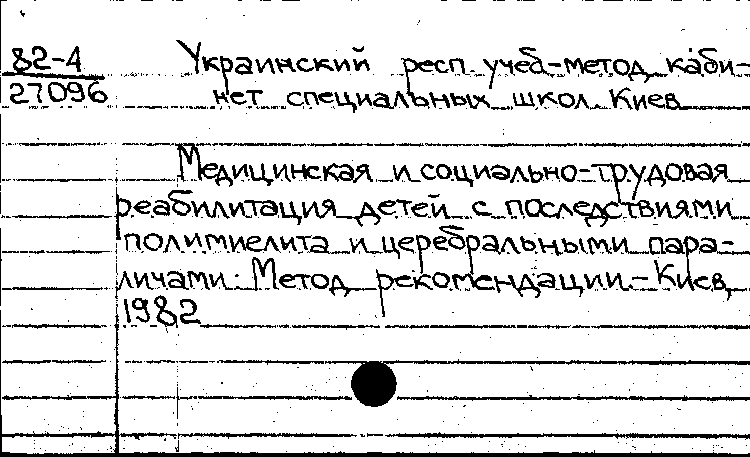 82-4
27096
Украинский респ. учеб-метод каби-
нет специальных школ. Киев
Медицинская и социально-трудовая
реабилитация детей с последствиями
полимиелита и церебральными пара-
личами: Метод рекомендации. - Киев,
1982